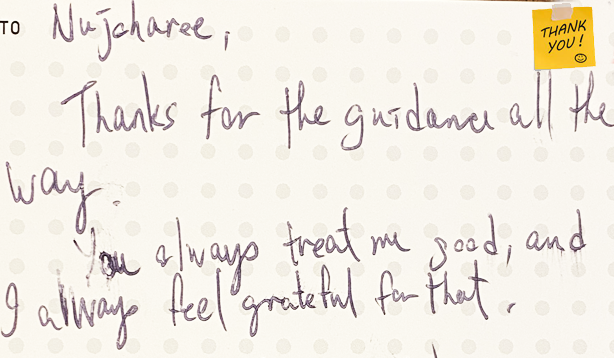 TO Nujcharee,
THANK
YOU!
Thanks for the guidance all the
way.
You always treat me good, and
I always feel grateful for that.